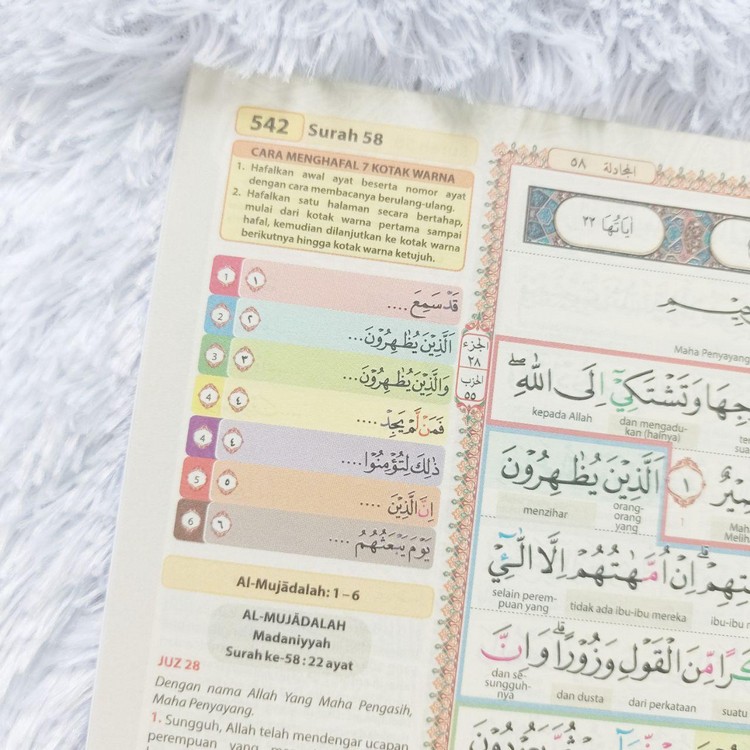 542 Surah 58
CARA MENGHAFAL 7 KOTAK WARNA
1. Hafalkan awal ayat beserta nomor ayat
dengan cara membacanya berulang-ulang.
2. Hafalkan satu halaman secara bertahap,
mulai dari kotak warna pertama sampai
hafal, kemudian dilanjutkan ke kotak warna
berikutnya hingga kotak warna ketujuh.
1 ١ قَدْ سَمِعَ ....
2 ٢ اَلَّذِيْنَ يُظٰهِرُوْنَ...
3 ٣ وَالَّذِيْنَ يُظٰهِرُوْنَ...
4 ٤ فَمَنْ لَّمْ يَجِدْ ....
4 ٤ ذٰلِكَ لِتُؤْمِنُوْا....
5 ٥ اِنَّ الَّذِيْنَ ....
6 ٦ يَوْمَ يَبْعَثُهُمُ ....
Al-Mujādalah: 1–6
AL-MUJĀDALAH
Madaniyyah
Surah ke-58 : 22 ayat
JUZ 28
Dengan nama Allah Yang Maha Pengasih,
Maha Penyayang.
1. Sungguh, Allah telah mendengar ucapan
perempuan yang
الجزء
٢٨
الحزب
٥٥
المجادلة ٥٨
اٰيَاتُهَا ٢٢
Maha Penyayang
وَتَشْتَكِيْٓ اِلَى اللّٰهِ ۖ
dan mengadu-
kan (halnya) kepada Allah
١ اَلَّذِيْنَ يُظٰهِرُوْنَ
orang-
orang
yang menzihar
اِنْ اُمَّهٰتُهُمْ اِلَّا الّٰۤـِٔيْ
tidak ada ibu-ibu mereka selain perem-
puan yang
مِّنَ الْقَوْلِ وَزُوْرًاۗ وَاِنَّ
dari perkataan dan dusta dan se-
sungguh-
nya